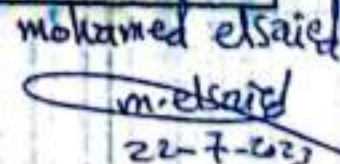 mohamed elsaied
m.elsaied
22-7-2023